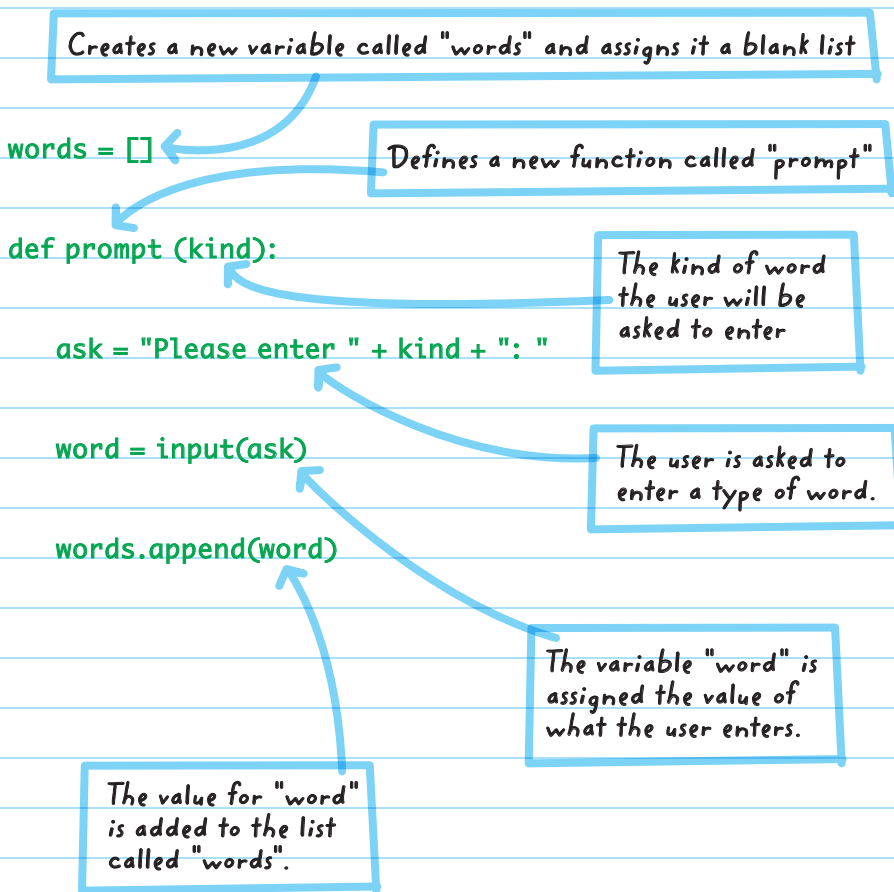 Creates a new variable called "words" and assigns it a blank list
words = []
Defines a new function called "prompt"
def prompt (kind):
The kind of word
the user will be
asked to enter
ask = "Please enter " + kind + ": "
word = input(ask)
The user is asked to
enter a type of word.
words.append(word)
The variable "word" is
assigned the value of
what the user enters.
The value for "word"
is added to the list
called "words".